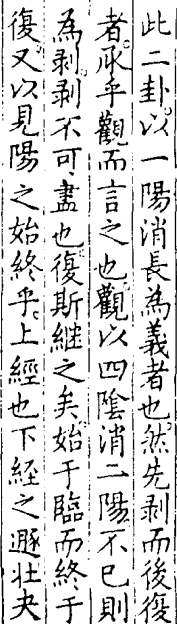 此二卦以一陽消長為義者也然先剥而後復
者承乎觀而言之也觀以四陰消二陽不已則
為剥剥不可盡也復斯継之矣始于臨而終于
復又以見陽之始終乎上經也下經之遯壯夬